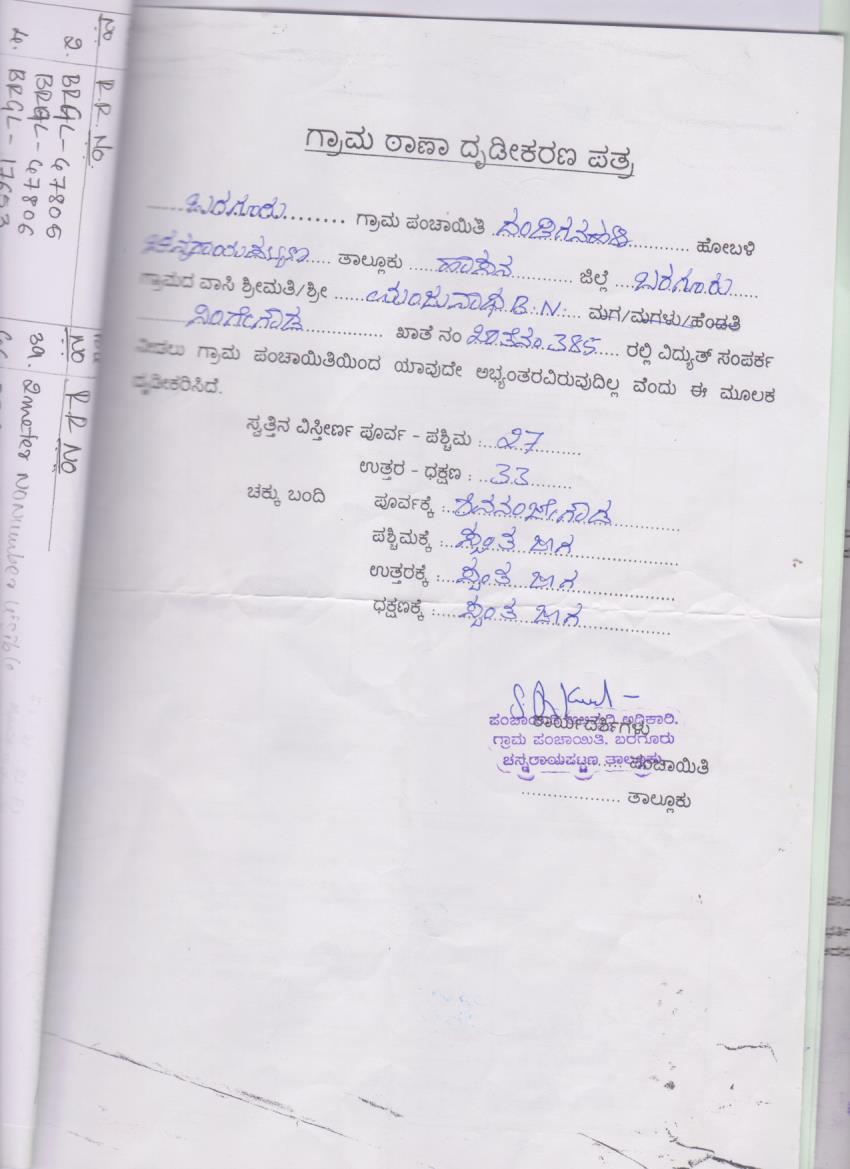 ನಂ
R.R. No.
2. BRGL-47805
BRGL-47806
4. BRGL-17603
ನಂ
R R No
39. 2 meter No Number visible
ಗ್ರಾಮ ಠಾಣಾ ದೃಡೀಕರಣ ಪತ್ರ
......ಬರಗೂರು........ ಗ್ರಾಮ ಪಂಚಾಯಿತಿ .ದಂಡಿಗನಹಳ್ಳಿ............ ಹೋಬಳಿ
ಚನ್ನರಾಯಪಟ್ಟಣ.... ತಾಲ್ಲೂಕು ....ಹಾಸನ............ ಜಿಲ್ಲೆ ....ಬರಗೂರು......
ಗ್ರಾಮದ ವಾಸಿ ಶ್ರೀಮತಿ/ಶ್ರೀ ......ಮಂಜುನಾಥ B.N.:... ಮಗ/ಮಗಳು/ಹೆಂಡತಿ
ನಿಂಗೇಗೌಡ................ ಖಾತೆ ನಂ 385..... ರಲ್ಲಿ ವಿದ್ಯುತ್ ಸಂಪರ್ಕ
ನೀಡಲು ಗ್ರಾಮ ಪಂಚಾಯಿತಿಯಿಂದ ಯಾವುದೇ ಅಭ್ಯಂತರವಿರುವುದಿಲ್ಲ ವೆಂದು ಈ ಮೂಲಕ
ದೃಡೀಕರಿಸಿದೆ.
ಸ್ವತ್ತಿನ ವಿಸ್ತೀರ್ಣ ಪೂರ್ವ - ಪಶ್ಚಿಮ :...27..........
ಉತ್ತರ - ಧಕ್ಷಣ : ..33.........
ಚಕ್ಕು ಬಂದಿ ಪೂರ್ವಕ್ಕೆ :
ಪಶ್ಚಿಮಕ್ಕೆ :..ಸ್ವಂತ ಜಾಗ..................
ಉತ್ತರಕ್ಕೆ :....ಸ್ವಂತ ಜಾಗ..................
ಧಕ್ಷಣಕ್ಕೆ :....ಸ್ವಂತ ಜಾಗ..................
ಕಾರ್ಯದರ್ಶಿಗಳು
ಪಂಚಾಯಿತಿ ಅಧಿಕಾರಿ.
ಗ್ರಾಮ ಪಂಚಾಯಿತಿ, ಬರಗೂರು
ಚನ್ನರಾಯಪಟ್ಟಣ ತಾಲ್ಲೂಕು
ಪಂಚಾಯಿತಿ
.................... ತಾಲ್ಲೂಕು